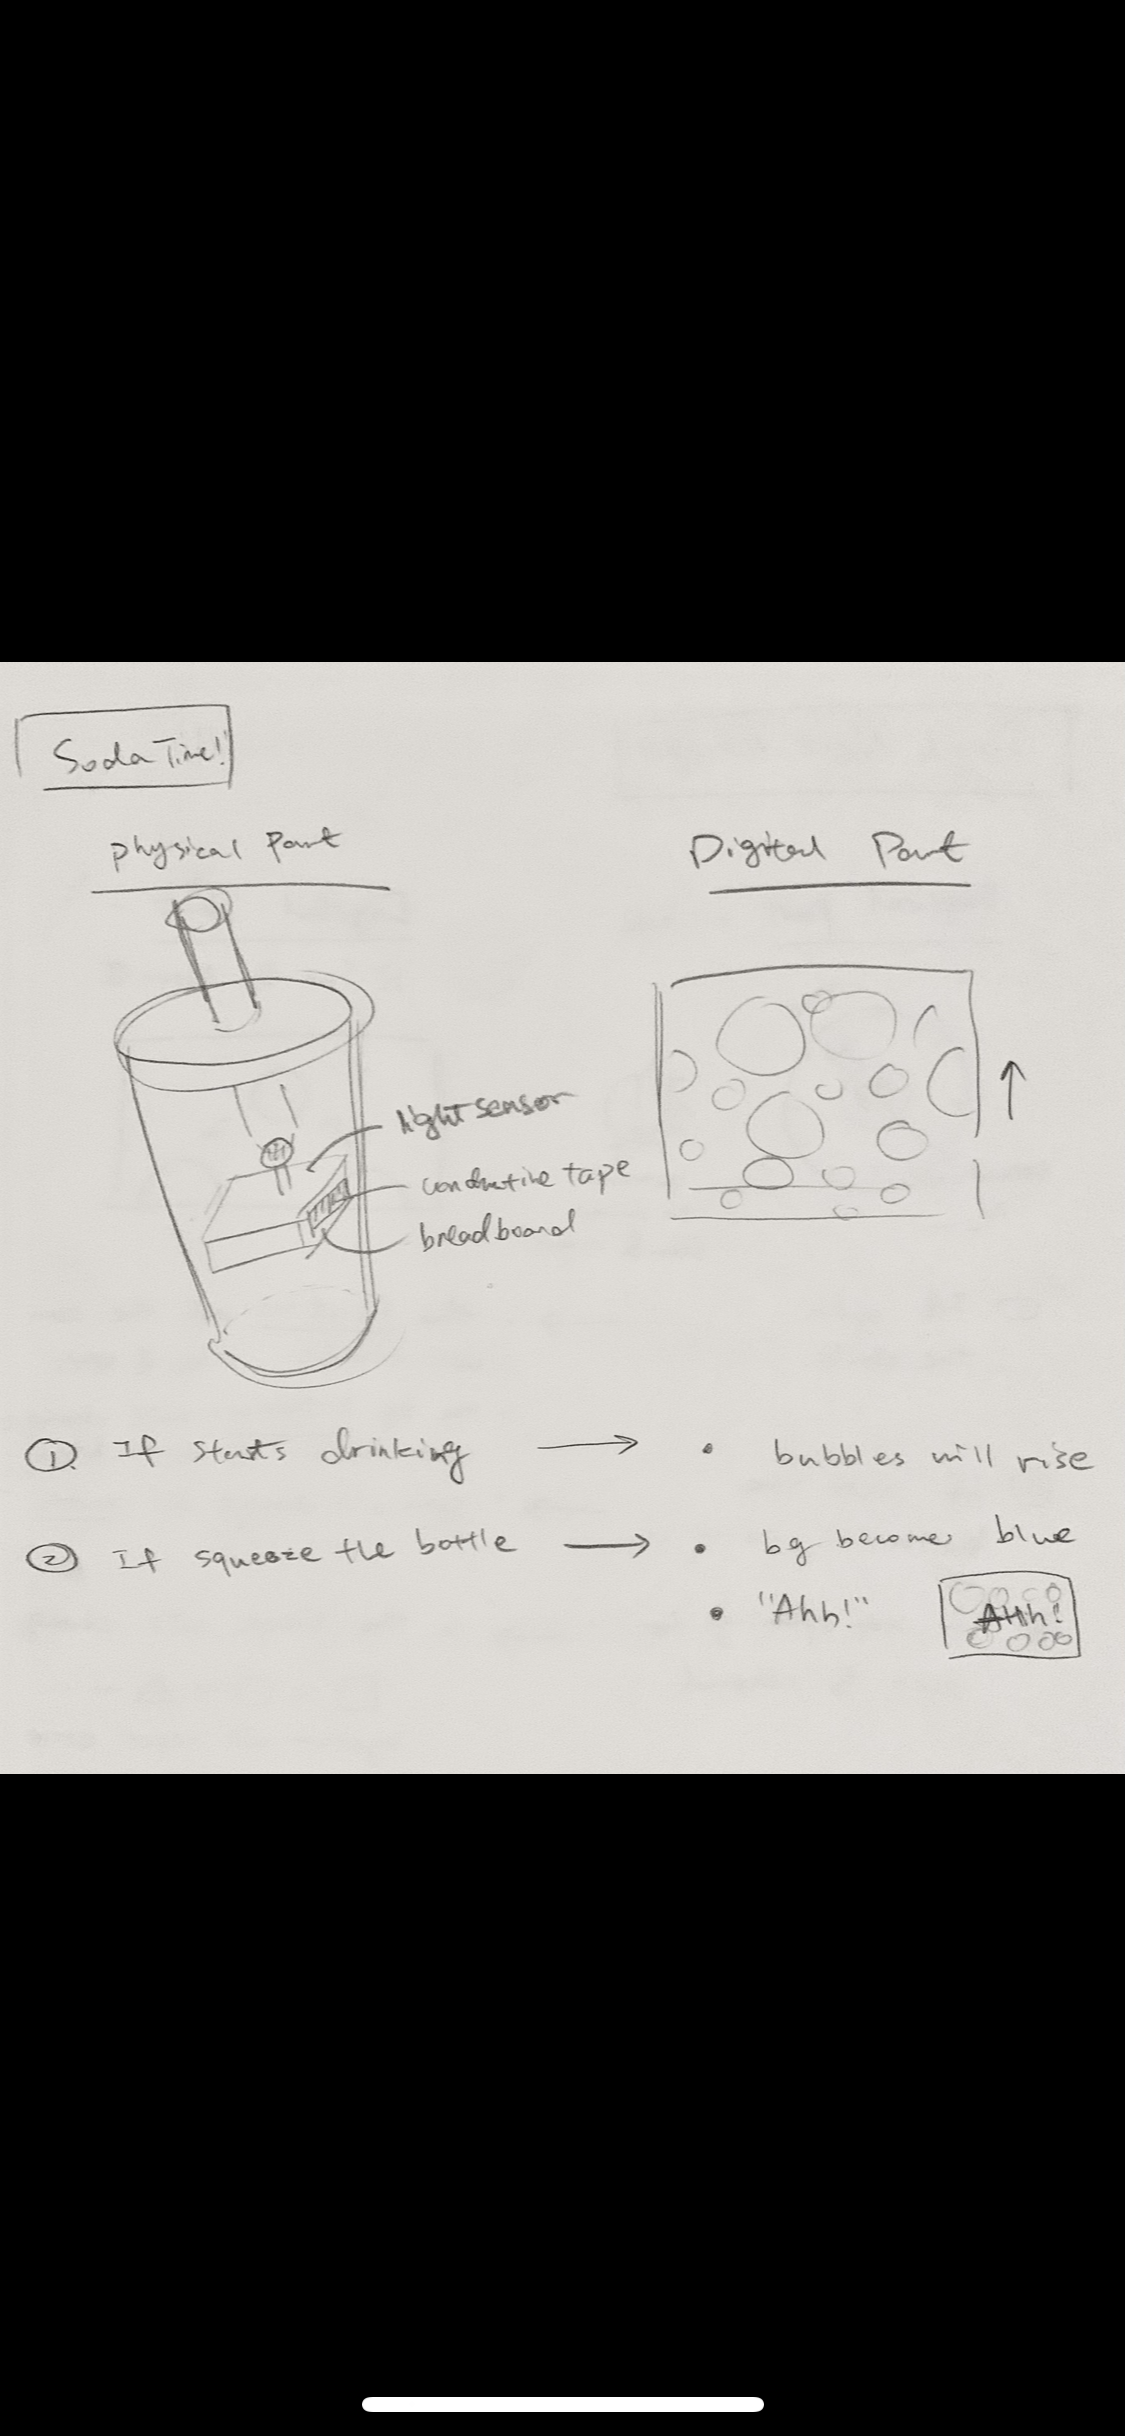 Soda Time!
Physical Part
Digital Part
light sensor
conductive tape
breadboard
① If starts drinking → • bubbles will rise
② If squeeze the bottle → • bg become blue
• "Ahh!"
Ahh!